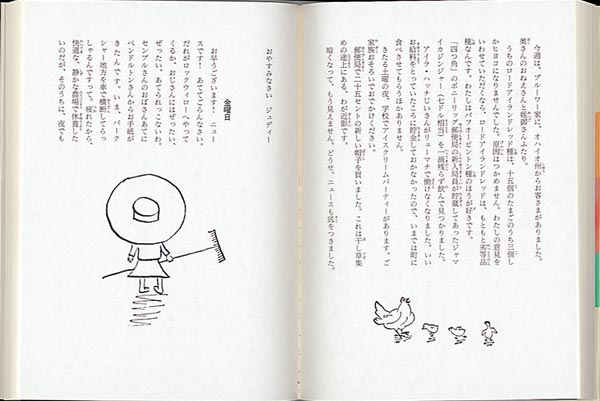 今週は、ブルーワー家に、オハイオ州からお客さまがありました。
奥さんのおねえさんと姪御さんふたり。
うちのロードアイランドレッド種は、十五個のたまごのうち三個し
かヒヨコになりませんでした。原因はつかめません。わたしの意見を
いわせていただくなら、ロードアイランドレッドは、もともと劣等品
種なんです。わたしはバフオーピントン種のほうが好きです。
「四つ角」のボニーリッグ郵便局の新入局員が貯蔵してあったジャマ
イカジンジャー（七ドル相当）を一滴残らず飲んで見つかりました。
アイラ・ハッチじいさんがリューマチで働けなくなりました。いい
お給料をとっていたころに貯金しておかなかったので、いまでは町に
食べさせてもらうほかありません。
きたる土曜の夜、学校でアイスクリームパーティーがあります。ご
家族おそろいでおでかけください。
郵便局で二十五セントの新しい帽子を買いました。これは干し草集
めの途上にある、わが近影です。
暗くなって、もう見えません。どうせ、ニュースも底をつきました。
おやすみなさい　ジュディー
金曜日
お早うございます！　ニュー
スです！　あててごらんなさい。
だれがロックウィローへやって
くるか、おじさんにはぜったい、
ぜったい、あてられっこないわ。
センプルさんのおばさんあてに
ペンドルトンさんからお手紙が
きたんです。いま、バーク
シャー地方を車で横断してらっ
しゃるんですって。疲れたから、
快適な、静かな農場で休養した
いのだが、そのうちに、夜でも